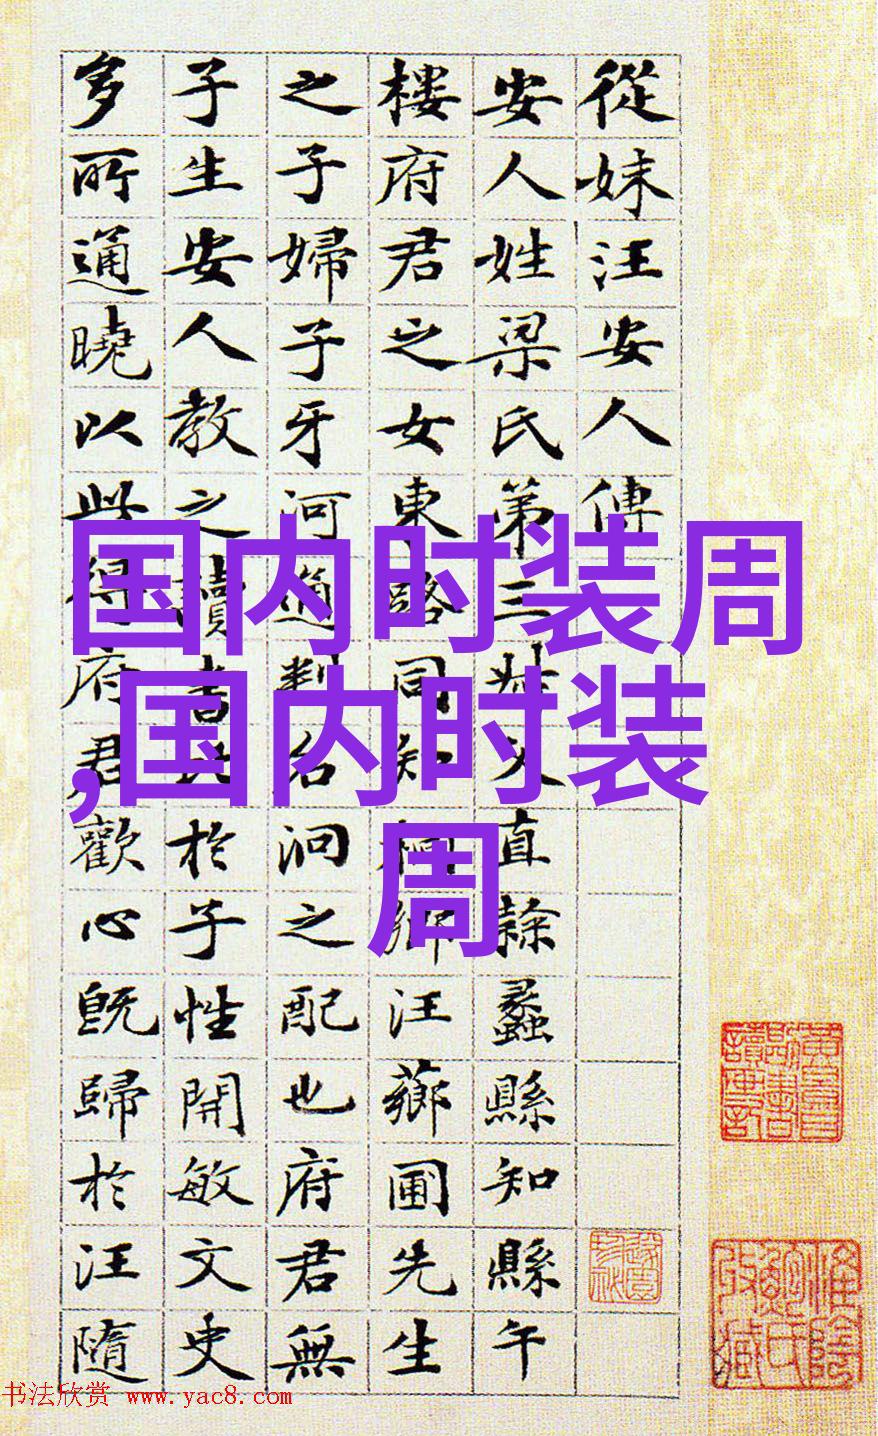 從妹汪安人傳
安人姓梁氏第三父直隸蠡縣知縣午
樓府君之女東路同知桐鄉汪薌圃先生
之子婦子牙河通判名泂之配也府君無
子生安人教之讀書比於子性開敏文史
多所通曉以此得府君歡心既歸於汪隨
国内时装周
,国内时装
周
书法欣赏 www.yac8.com